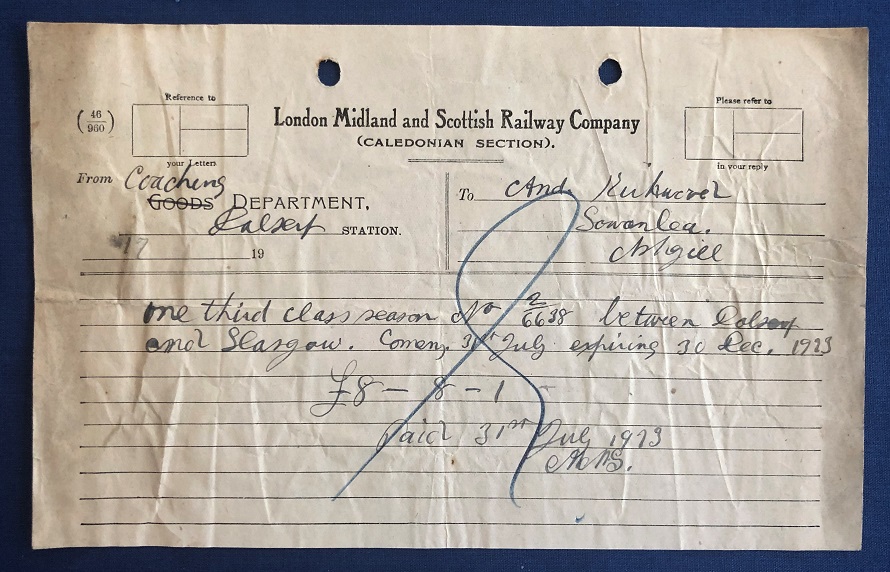 Reference to
Please refer to
(46/960)
London Midland and Scottish Railway Company
(CALEDONIAN SECTION).
your Letters
in your reply
From Coaching
GOODS DEPARTMENT,
Dalserf STATION.
17 19
To And. Kirkwood
Sowanlea.
Ashgill
one third class season No 2/6638 between Dalserf
and Glasgow. Comeng 31st July expiring 30 Dec. 1923
£8 - 8 - 1
Paid 31st July 1923